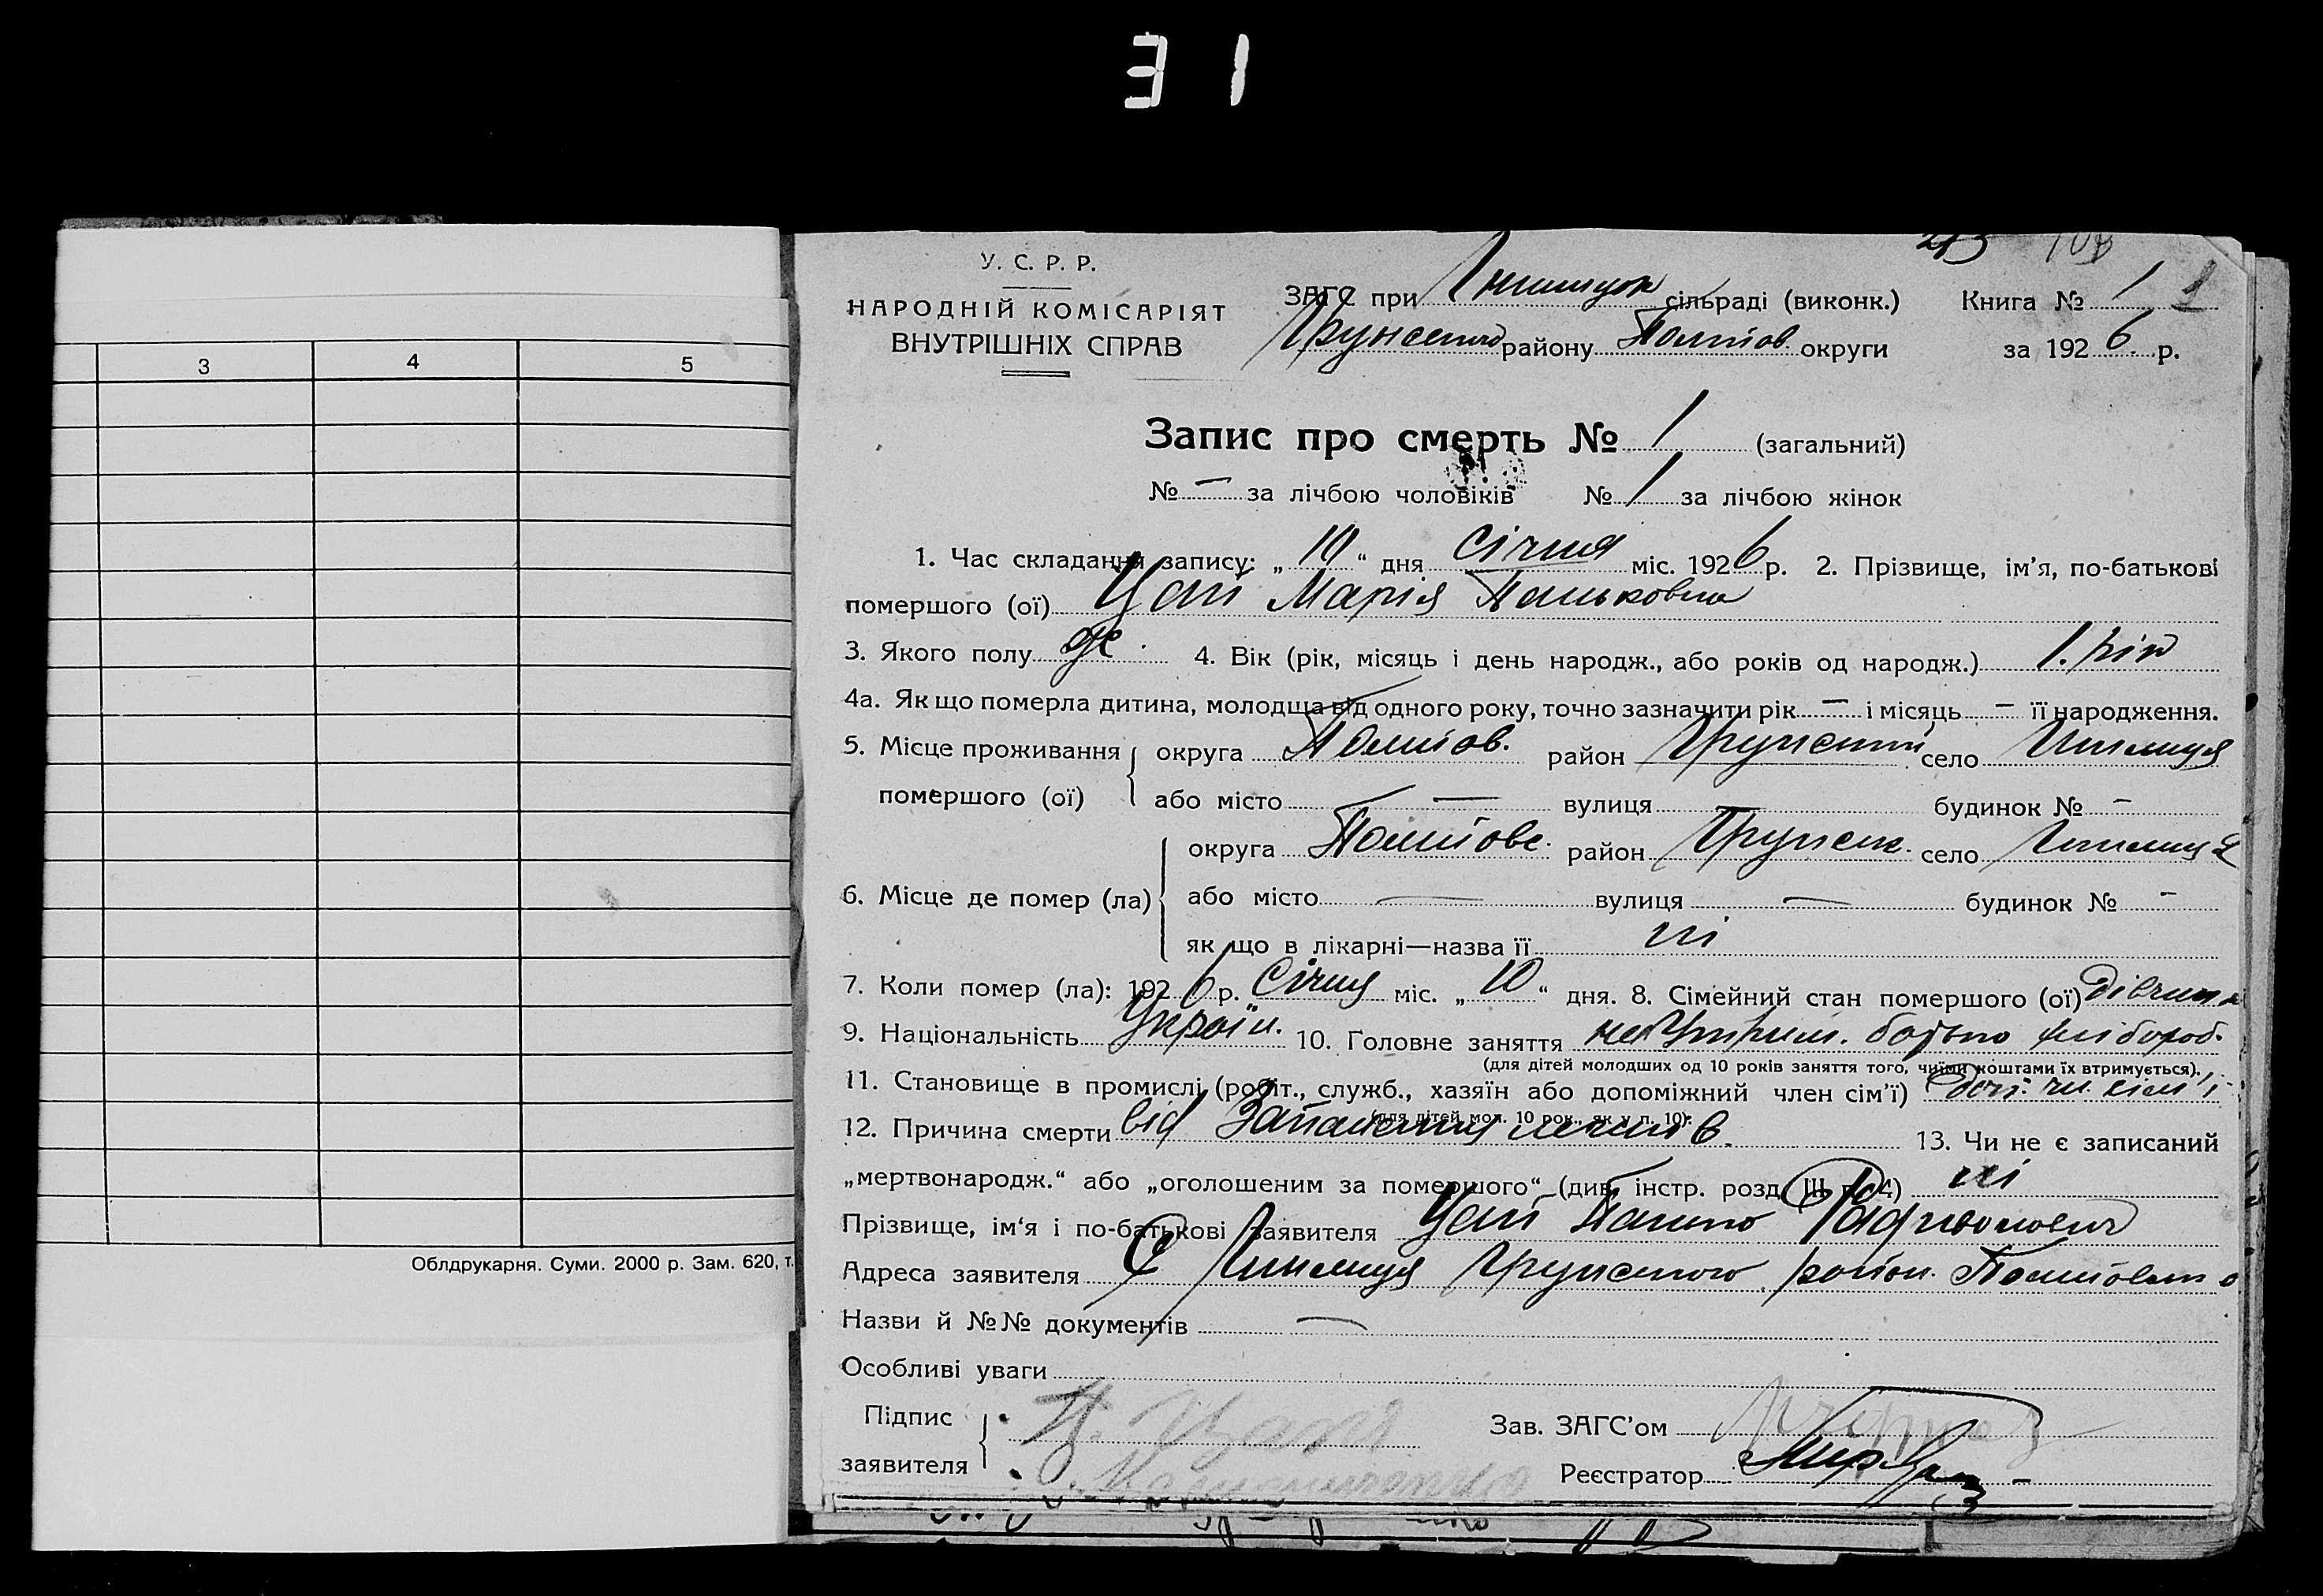 31
У. С. Р. Р.
НАРОДНІЙ КОМІСАРІЯТ
ВНУТРІШНІХ СПРАВ
ЗАГС при сільраді (виконк.)
району Полтов. округи
Книга № 1
за 1926 р.
Запис про смерть № 1 (загальний)
№ — за лічбою чоловіків № 1 за лічбою жінок
1. Час складання запису: „10“ дня Січня міс. 1926 р. 2. Прізвище, ім'я, по-батькові
помершого (ої) Цап Марія Паньковна
3. Якого полу ж. 4. Вік (рік, місяць і день народж., або років од народж.) 1. рік
4а. Як що померла дитина, молодща від одного року, точно зазначити рік — і місяць — її народження.
5. Місце проживання помершого (ої) округа Полтов. район Грунський село
або місто — вулиця — будинок № -
6. Місце де помер (ла) округа Полтовс. район Грунськ. село
або місто — вулиця — будинок № -
як що в лікарні—назва її ні
7. Коли помер (ла): 1926 р. Січня міс. „10“ дня. 8. Сімейний стан помершого (ої) дівчина
9. Національність Україн. 10. Головне заняття батько хлібороб.
(для дітей молодших од 10 років заняття того, чиїми коштами їх втримується).
11. Становище в промислі (робіт., служб., хазяїн або допоміжний член сім'ї) чл. сім'ї
(для дітей мол. 10 рок., як у п. 10).
12. Причина смерти від Запалення легенів. 13. Чи не є записаний
„мертвонародж.“ або „оголошеним за помершого“ (див. інстр. розд. III п. 4) ні
Прізвище, ім'я і по-батькові заявителя Цап Панько
Адреса заявителя С Грунського район.
Назви й №№ документів —
Особливі уваги
Підпис заявителя
Зав. ЗАГС'ом
Реєстратор
3 4 5
Облдрукарня. Суми. 2000 р. Зам. 620, т.